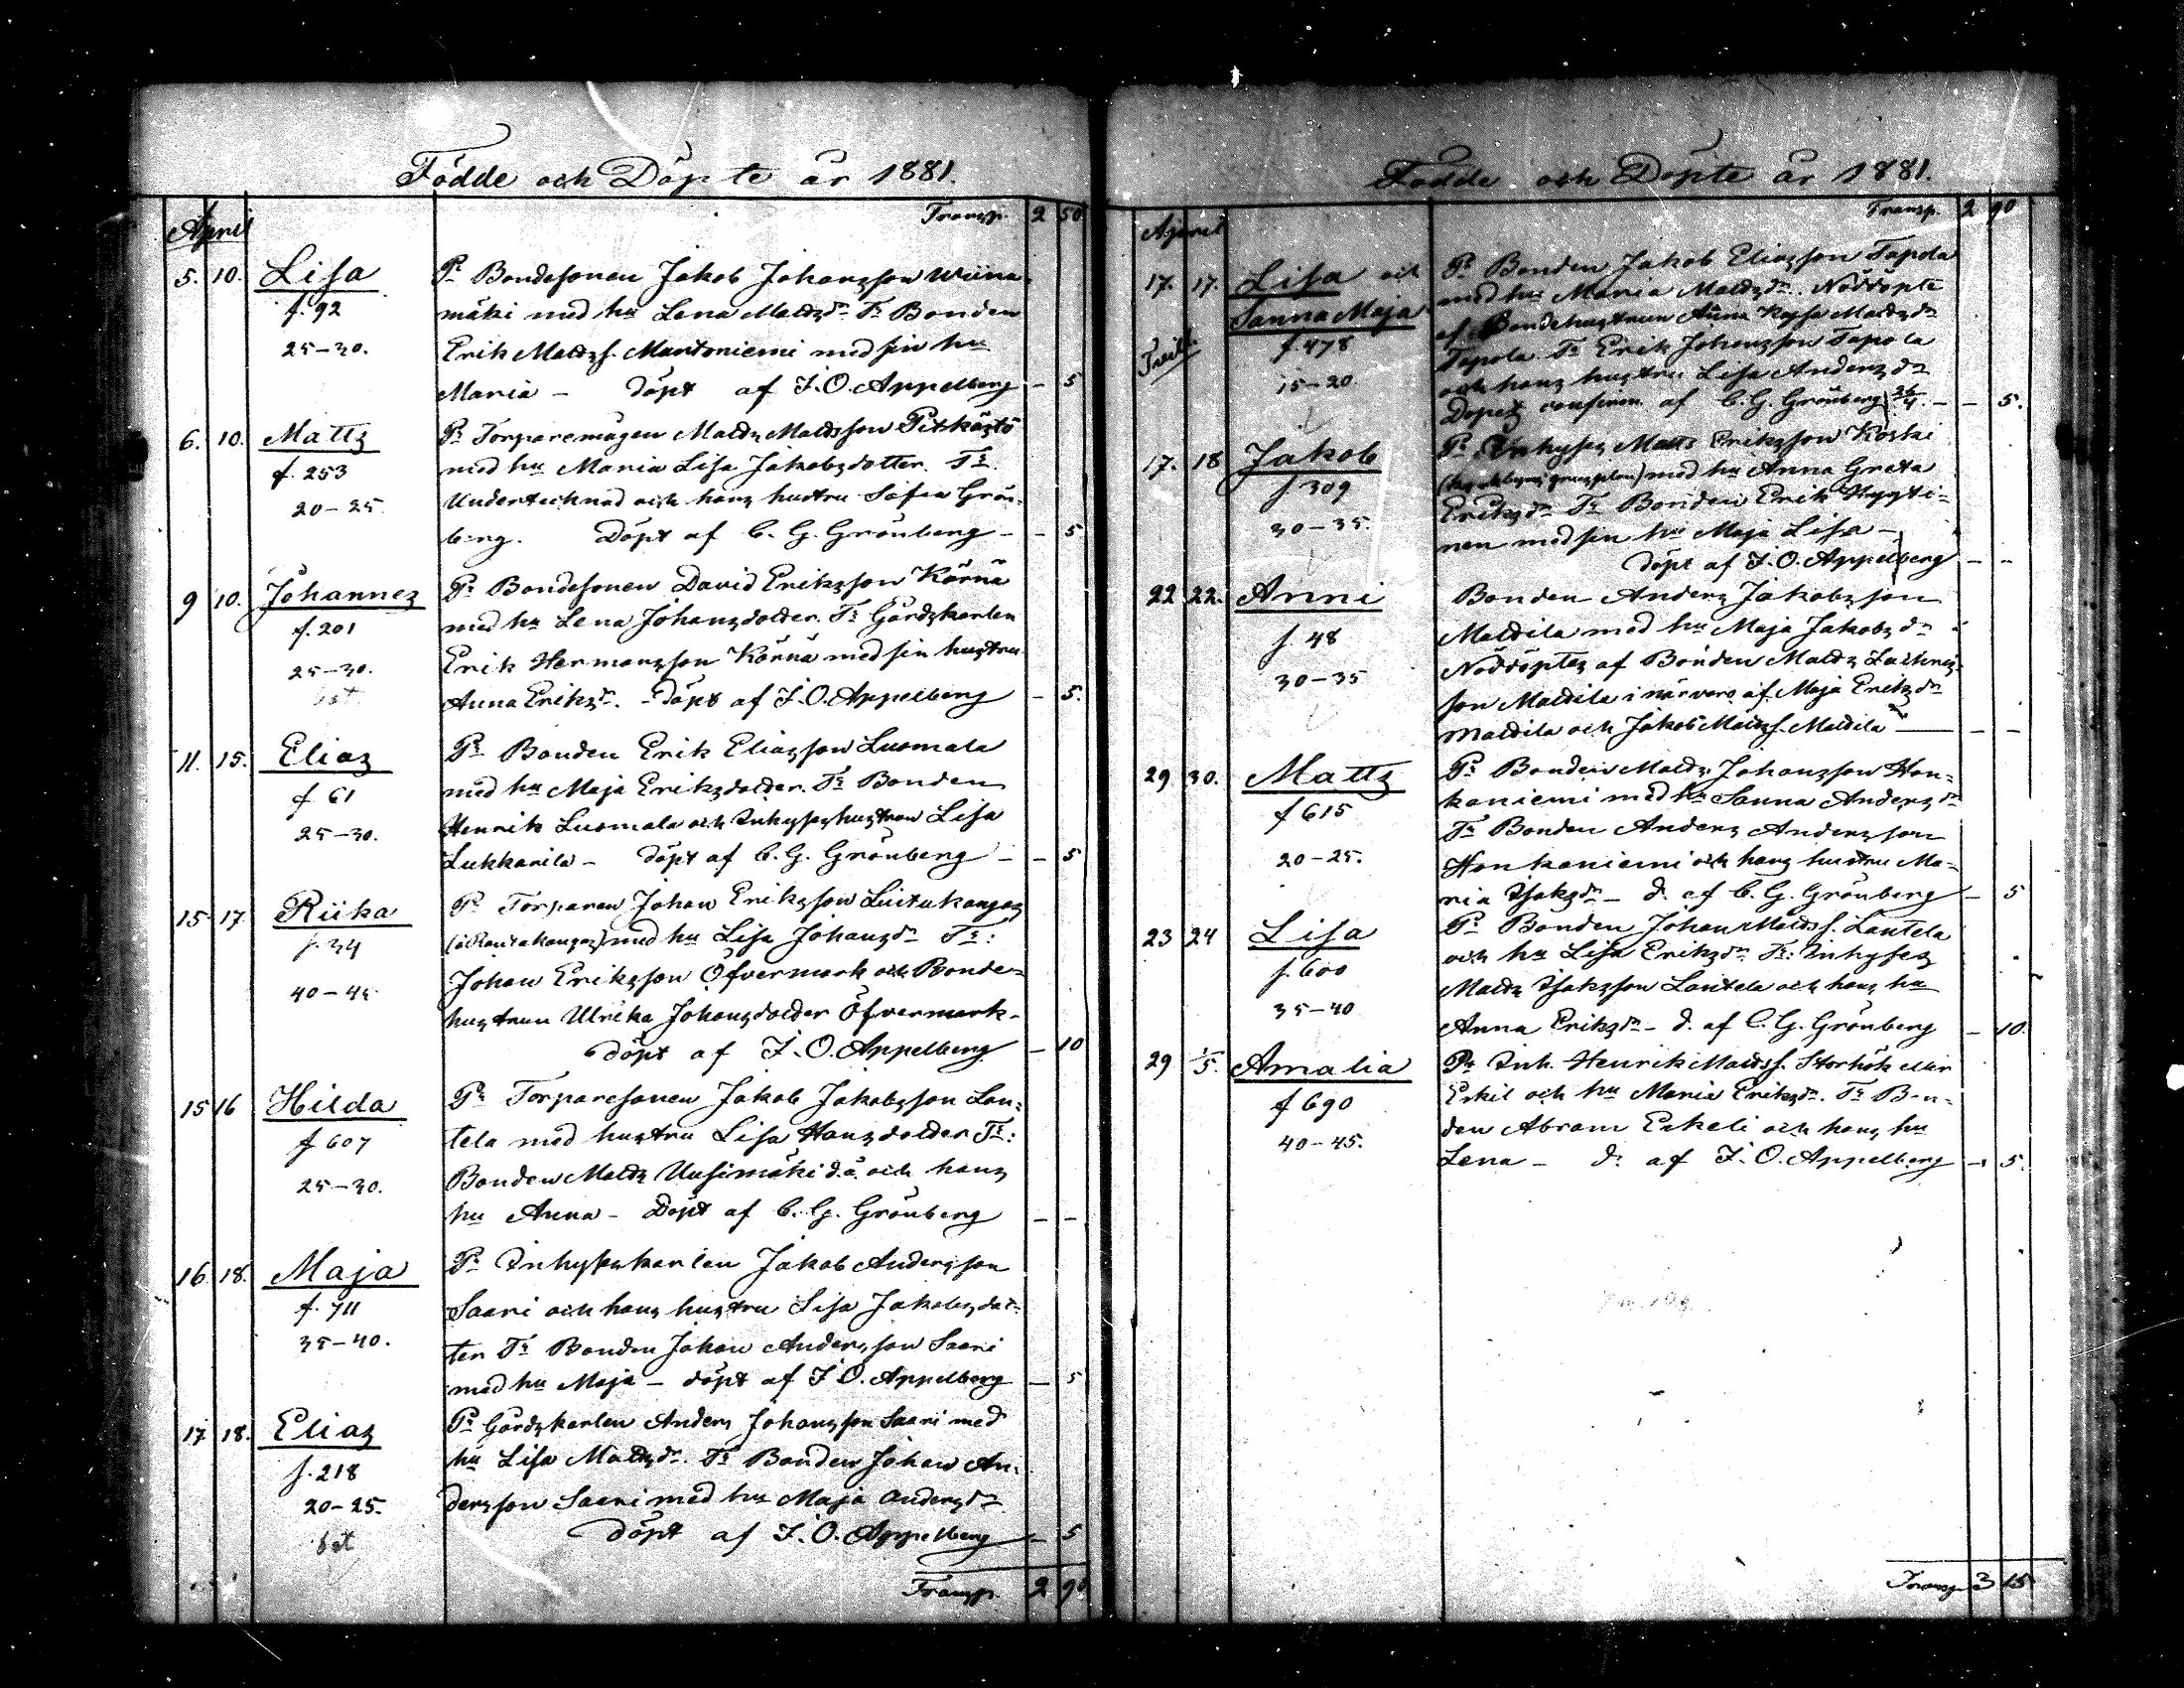 Födde och Döpte år 1881.
April
Transp. 2 50
5. 10. Lisa Pr Bondesonen Jakob Johansson Wiina-
f. 92 mäki med hu Lena Mattsdr Tr Bonden
25-30. Erik Matts. Mantoniemi med sin hu
Maria - döpt af J. O. Appelberg - 5
6. 10. Matts Pr Torparemågen Matts Mattsson Pitkästö
f. 253 med hu Maria Lisa Jakobsdotter. Tr
20-25. Undertecknad och hans hustru Sofia Grön-
berg. Döpt af C. G. Grönberg - - 5
9 10. Johannes Pr Bondesonen David Eriksson Körnä
f. 201 med hu Lena Johansdotter. Tr Gårdskarlen
25-30. Erik Hermansson Körnä med sin hustru
Anna Eriksdr. - döpt af J. O. Appelberg - 5.
11. 15. Elias Pr Bonden Erik Eliasson Luomala
f. 61 med hu Maja Eriksdotter. Tr Bonden
25-30. Henrik Luomala och Inhyseshustrun Lisa
Lukkarila - döpt af C. G. Grönberg - - 5
15 17. Riika Pr Torparen Johan Eriksson Luitukangas
f. 34 med hu Lisa Johansdr Tr:
40-45 Johan Eriksson Öfvermark och Bonde-
hustrun Ulrika Johansdotter Öfvermark-
döpt af J. O. Appelberg - 10
15 16 Hilda Pr Torparesonen Jakob Jakobsson Lan-
f. 607 tela med hustru Lisa Hansdotter Tr:
25-30. Bonden Matts Uusimäki d.ä. och hans
hu Anna - Döpt af C. G. Grönberg - -
16. 18. Maja Pr Inhyseskarlen Jakob Andersson
f. 711 Saari och hans hustru Lisa Jakobsdot-
35-40. ter Tr Bonden Johan Andersson Saari
med hu Maja - döpt af J. O. Appelberg - 5
17 18. Elias Pr Gårdskarlen Anders Johansson Saari med
f. 218 hu Lisa Mattsdr. Tr Bonden Johan An-
20-25. dersson Saari med hu Maja Andersdr
döpt af J. O. Appelberg - 5
Transp. 2 90
Födde och Döpte år 1881.
April
Transp. 2 90
17. 17. Lisa och Pr Bonden Jakob Eliasson Tapola
Sanna Maja med hu Maria Mattsdr. Nöddöpte
f. 478 af Bondehustrun Anna Kajsa Mattsdr
Tapola. Tr Erik Johansson Tapola
15-20 och hans hustru Lisa Andersdr
Dopet confirm. af C. G. Grönberg 26/4. - - 5.
17. 18 Jakob Pr Inhyses Matts Eriksson Koski
f. 309 med hu Anna Greta
30-35. Eriksdr Tr Bonden Erik Hyyti-
nen med sin hu Maja Lisa -
döpt af J. O. Appelberg - -
22 22. Anni Bonden Anders Jakobsson
f. 48 Mattila med hu Maja Jakobsdr
30-35 Nöddöptes af Bonden Matts
son Mattila i närvaro af Maja Eriksdr
Mattila och Jakob Matts. Mattila - - -
29 30. Matts Pr Bonden Matts Johansson Hon-
f. 615 kaniemi med hu Sanna Andersdr
Tr Bonden Anders Andersson
20-25. Honkaniemi och hans hustru Ma-
ria Isaksdr - d. af C. G. Grönberg - 5
23 24 Lisa Pr Bonden Johan Matts. Lantela
f. 600 och hu Lisa Eriksdr Tr: Inhyses
Matts Isaksson Lantela och hans hu
35-40 Anna Eriksdr - d. af C. G. Grönberg - 10.
29 1/5. Amalia Pr Inh. Henrik Matts. Storhök eller
f. 690 Eskil och hu Maria Eriksdr. Tr Bon-
40-45. den Abram Eskeli och hans hu
Lena - d: af J. O. Appelberg - 5.
Transp. 3 15